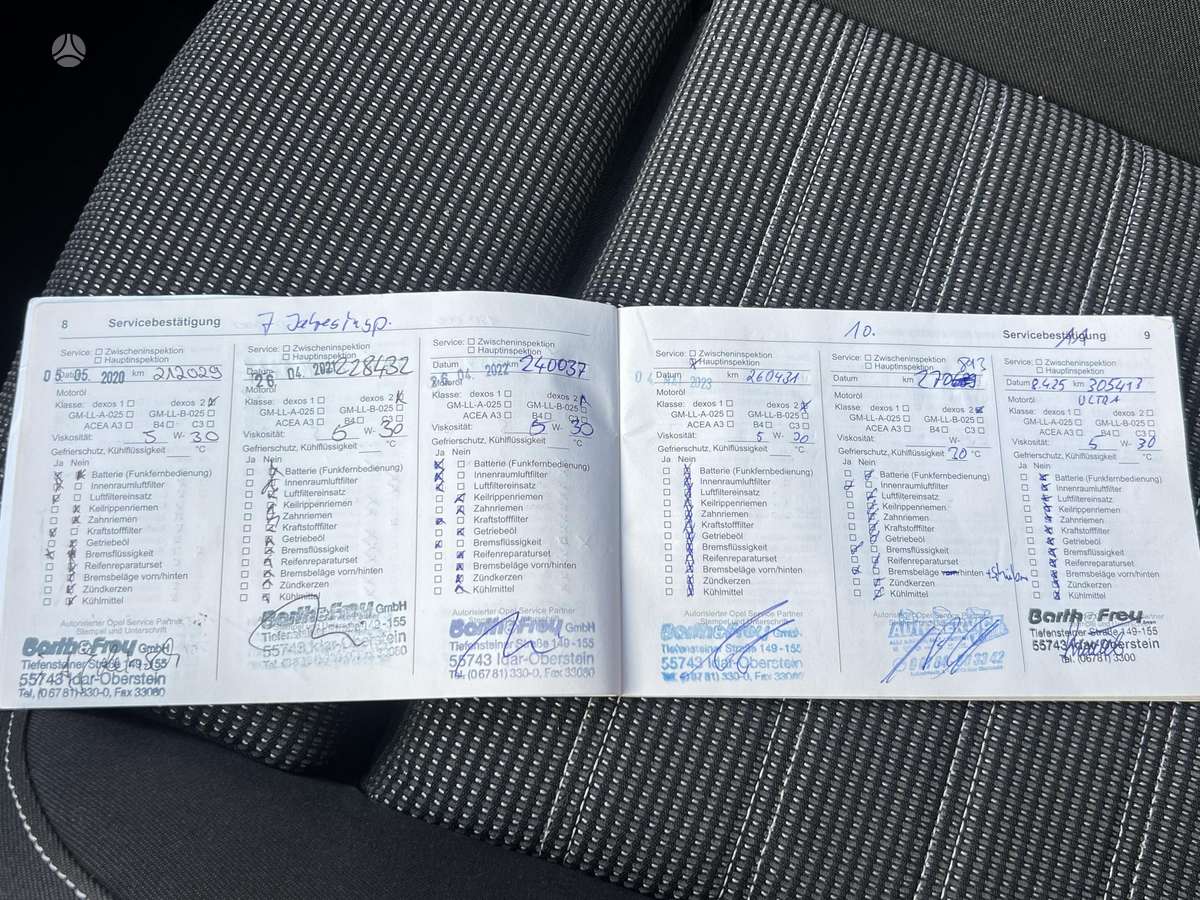 8 Servicebestätigung 7 Jahresinsp.
Service: Zwischeninspektion
Hauptinspektion
05. 05. 2020 km 212029
Motoröl
Klasse: dexos 1 dexos 2
GM-LL-A-025 GM-LL-B-025
ACEA A3 B4 C3
Viskosität: 5 W- 30
Gefrierschutz, Kühlflüssigkeit °C
Ja Nein
Batterie (Funkfernbedienung)
Innenraumluftfilter
Luftfiltereinsatz
Keilrippenriemen
Zahnriemen
Kraftstofffilter
Getriebeöl
Bremsflüssigkeit
Reifenreparaturset
Bremsbeläge vorn/hinten
Zündkerzen
Kühlmittel
Autorisierter Opel Service Partner
Stempel und Unterschrift
Barth+Frey GmbH
Tiefensteiner Straße 149-155
55743 Idar-Oberstein
Tel. (0 67 81) 330-0, Fax 33080
Service: Zwischeninspektion
Hauptinspektion
26. 04. 2021 228432
Motoröl
Klasse: dexos 1 dexos 2
GM-LL-A-025 GM-LL-B-025
ACEA A3 B4 C3
Viskosität: 5 W- 30
Gefrierschutz, Kühlflüssigkeit °C
Ja Nein
Batterie (Funkfernbedienung)
Innenraumluftfilter
Luftfiltereinsatz
Keilrippenriemen
Zahnriemen
Kraftstofffilter
Getriebeöl
Bremsflüssigkeit
Reifenreparaturset
Bremsbeläge vorn/hinten
Zündkerzen
Kühlmittel
Barth+Frey GmbH
Tiefensteiner Straße 149-155
55743 Idar-Oberstein
Service: Zwischeninspektion
Hauptinspektion
Datum 04. 2022 240037
Motoröl
Klasse: dexos 1 dexos 2
GM-LL-A-025 GM-LL-B-025
ACEA A3 B4 C3
Viskosität: 5 W- 30
Gefrierschutz, Kühlflüssigkeit °C
Ja Nein
Batterie (Funkfernbedienung)
Innenraumluftfilter
Luftfiltereinsatz
Keilrippenriemen
Zahnriemen
Kraftstofffilter
Getriebeöl
Bremsflüssigkeit
Reifenreparaturset
Bremsbeläge vorn/hinten
Zündkerzen
Kühlmittel
Autorisierter Opel Service Partner
Barth+Frey GmbH
Tiefensteiner Straße 149-155
55743 Idar-Oberstein
Tel. (0 67 81) 330-0, Fax 33080
10. Servicebestätigung 11. 9
Service: Zwischeninspektion
Hauptinspektion
Datum 2023 km 260431
Motoröl
Klasse: dexos 1 dexos 2
GM-LL-A-025 GM-LL-B-025
ACEA A3 B4 C3
Viskosität: 5 W- 30
Gefrierschutz, Kühlflüssigkeit °C
Ja Nein
Batterie (Funkfernbedienung)
Innenraumluftfilter
Luftfiltereinsatz
Keilrippenriemen
Zahnriemen
Kraftstofffilter
Getriebeöl
Bremsflüssigkeit
Reifenreparaturset
Bremsbeläge vorn/hinten
Zündkerzen
Kühlmittel
Autorisierter Opel Service Partner
Stempel und Unterschrift
Barth+Frey GmbH
Tiefensteiner Straße 149-155
55743 Idar-Oberstein
Tel. (0 67 81) 330-0, Fax 33080
Service: Zwischeninspektion
Hauptinspektion 813
Datum km 270
Motoröl
Klasse: dexos 1 dexos 2
GM-LL-A-025 GM-LL-B-025
ACEA A3 B4 C3
Viskosität: W-
Gefrierschutz, Kühlflüssigkeit 30 °C
Ja Nein
Batterie (Funkfernbedienung)
Innenraumluftfilter
Luftfiltereinsatz
Keilrippenriemen
Zahnriemen
Kraftstofffilter
Getriebeöl
Bremsflüssigkeit
Reifenreparaturset
Bremsbeläge vorn/hinten
Zündkerzen
Kühlmittel
Service: Zwischeninspektion
Hauptinspektion
Datum 8.4.25 km 305413
Motoröl ULTRA
Klasse: dexos 1 dexos 2
GM-LL-A-025 GM-LL-B-025
ACEA A3 B4 C3
Viskosität: 5 W- 30
Gefrierschutz, Kühlflüssigkeit °C
Ja Nein
Batterie (Funkfernbedienung)
Innenraumluftfilter
Luftfiltereinsatz
Keilrippenriemen
Zahnriemen
Kraftstofffilter
Getriebeöl
Bremsflüssigkeit
Reifenreparaturset
Bremsbeläge vorn/hinten
Zündkerzen
Kühlmittel
Barth+Frey GmbH
Tiefensteiner Straße 149-155
55743 Idar-Oberstein
Tel. (06781) 3300